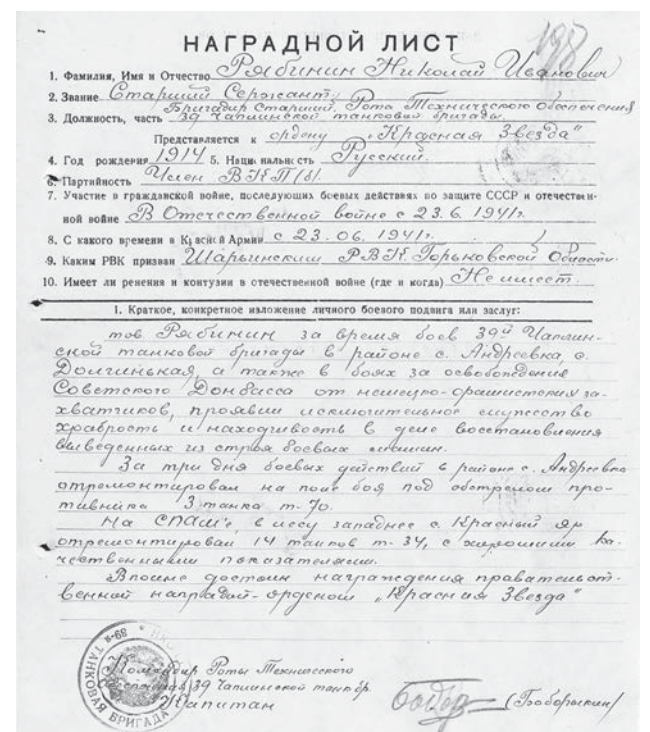 НАГРАДНОЙ ЛИСТ
1. Фамилия, Имя и Отчество Рябинин Николай Иванович
2. Звание Старший Сержант
Бригадир Старший, Рота Технического Обеспечения
3. Должность, часть 39 Чаплинской танковой бригады.
Представляется к ордену „Красная Звезда"
4. Год рождения 1914 5. Национальность Русский.
6. Партийность Член ВКП(б).
7. Участие в гражданской войне, последующих боевых действиях по защите СССР и отечествен-
ной войне В Отечественной войне с 23.6.1941г.
8. С какого времени в Красной Армии с 23.06.1941г.
9. Каким РВК призван Шарьинским РВК Горьковской Области.
10. Имеет ли ренения и контузии в отечественной войне (где и когда) Не имеет.
1. Краткое, конкретное изложение личного боевого подвига или заслуг:
тов. Рябинин за время боев 39й Чаплин-
ской танковой бригады в районе с. Андреевка, с.
Долгинькая, а также в боях за освобождение
Советского Донбасса от немецко-фашистских за-
хватчиков, проявил исключительное мужество
храбрость и находчивость в деле восстановления
выведенных из строя боевых машин.
За три дня боевых действий в районе с. Андреевка
отремонтировал на поле боя под обстрелом про-
тивника 3 танка т-70.
На СПАМ'е, в лесу западнее с. Красный Яр
отремонтировал 14 танков т-34, с хорошими ка-
чественными показателями.
Вполне достоин награждения правительст-
венной наградой-орденом „Красная Звезда"
Командир Роты Технического
Обеспечения 39 Чаплинской танк. бр.
Капитан (Боборыкин)
ТАНКОВАЯ БРИГАДА